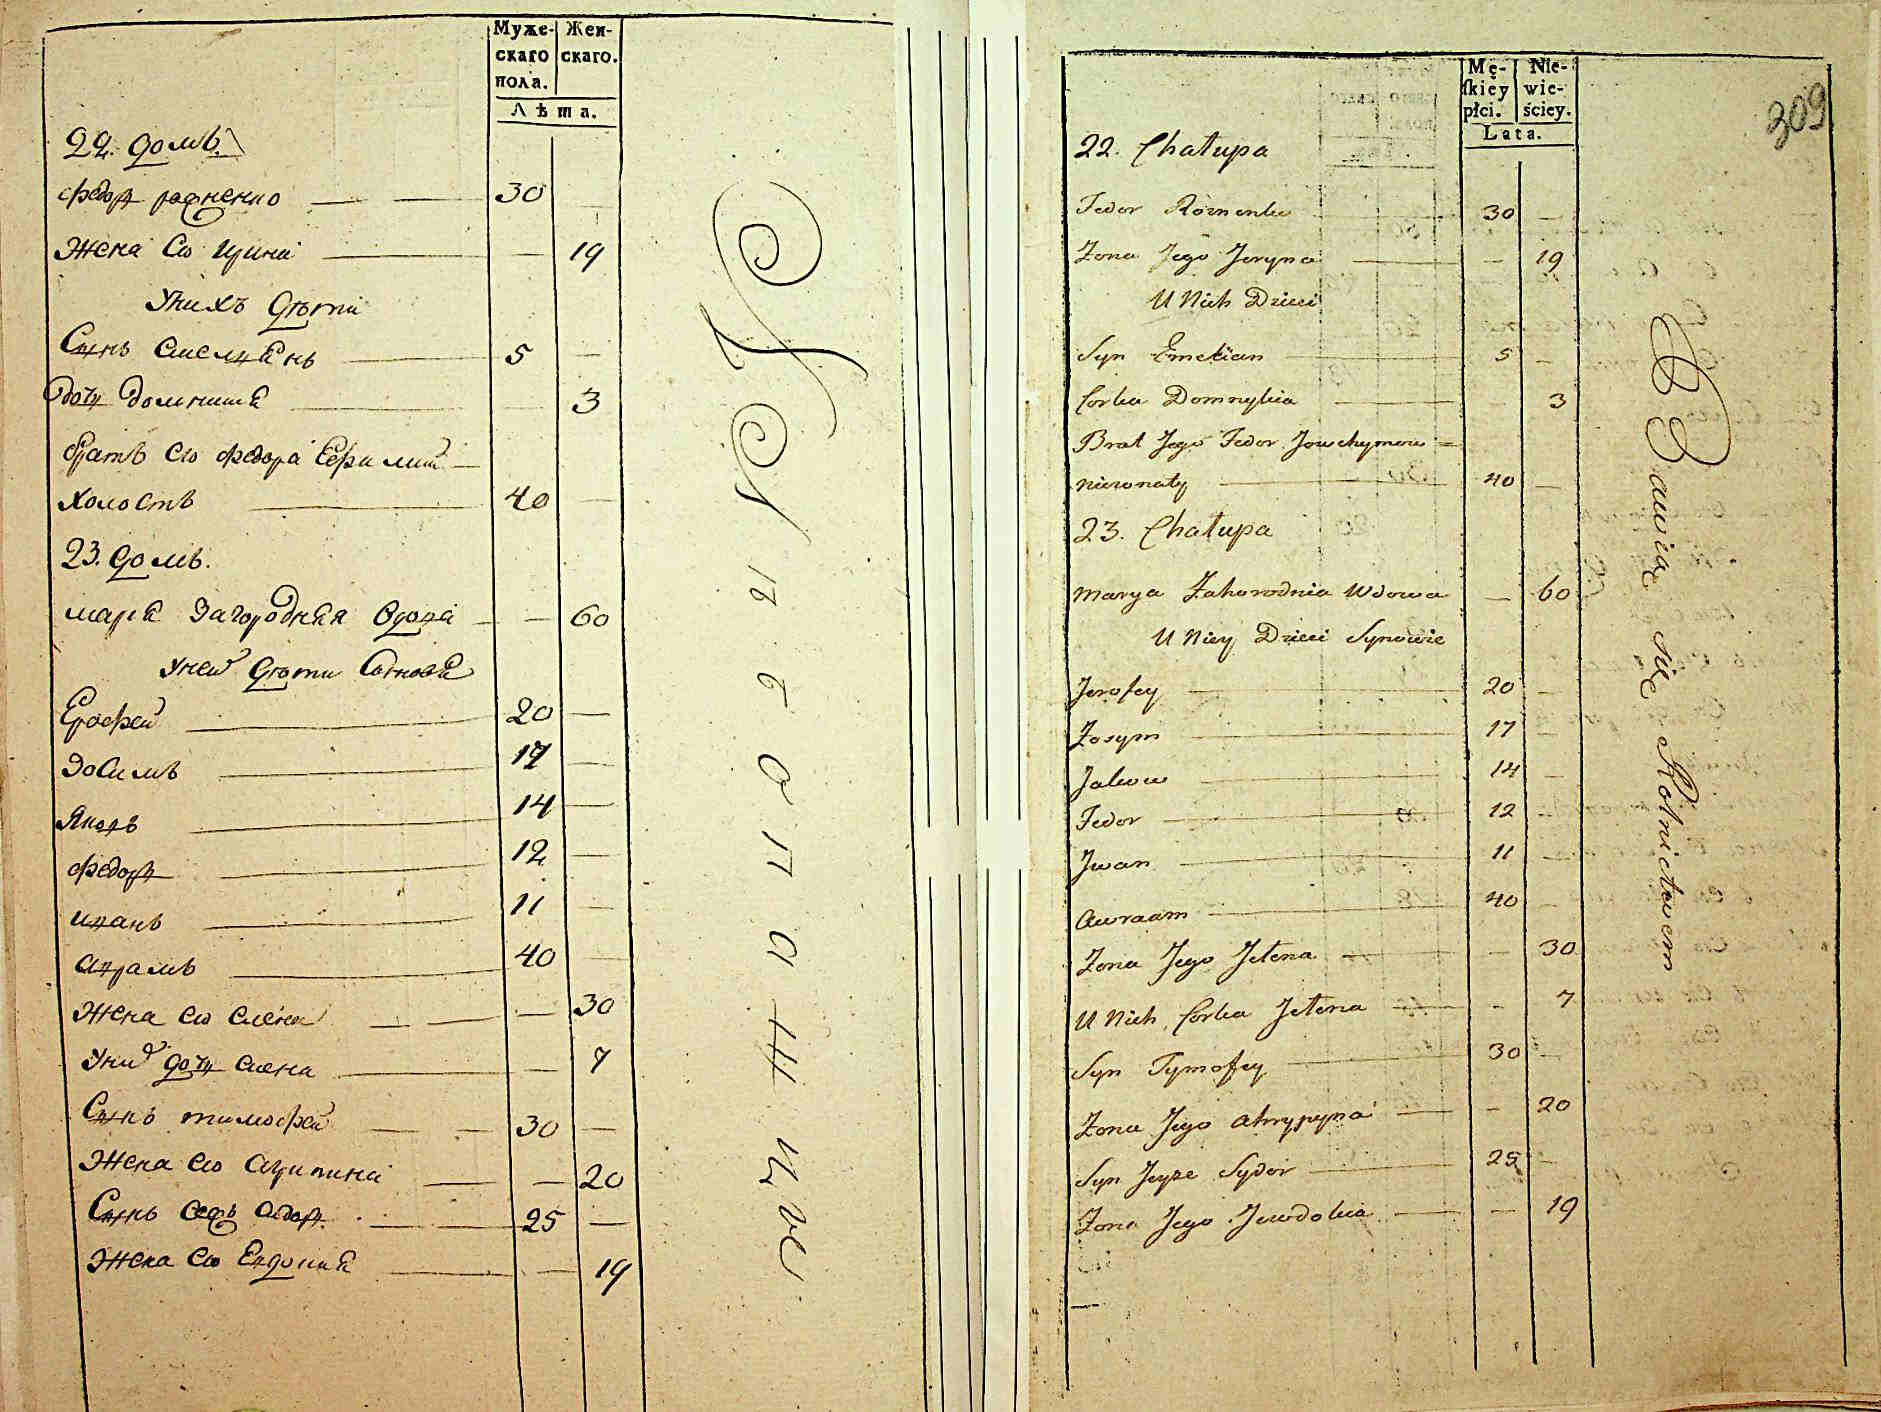 Муже-
скаго
пола.
Жен-
скаго.
Лѣта.
22. домъ
Федор 30
Жена его Ирина 19
У нихъ дѣти
Сынъ Емельянъ 5
дочь Домникия 3
братъ его Федора Ефимий
холостъ 40
23. домъ.
Мария Загородняя вдова 60
У ней дѣти Сыновя
Ерофей 20
Зосимъ 17
Яковъ 14
Федор 12
Иванъ 11
Аврамъ 40
Жена его Елена 30
У них дочь Елена 7
Сынъ Тимофей 30
Жена его Агрипина 20
Сынъ Сидор 25
Жена его Евдокия 19
309
Mę-
skiey
płci.
Nie-
wie-
ściey.
Lata.
22. Chałupa
Fedor Romenko 30 —
Żona Jego Jeryna — 19
U Nich Dzieci
Syn Emelian 5 —
Corka Domnykia — 3
Brat Jego Fedor Jowchymow
nieżonaty 40 —
23. Chałupa
Marya Zahorodnia Wdowa — 60
U Niey Dzieci Synowie
Jerofey 20 —
Zosym 17 —
Jakow 14 —
Fedor 12 —
Jwan 11 —
Awraam 40 —
Żona Jego Jełena — 30
U Nich Corka Jełena — 7
Syn Tymofey 30 —
Żona Jego Ahrypyna — 20
Syn Jeyże Sydor 25 —
Żona Jego Jewdokia — 19
Bawią się Rolnictwem